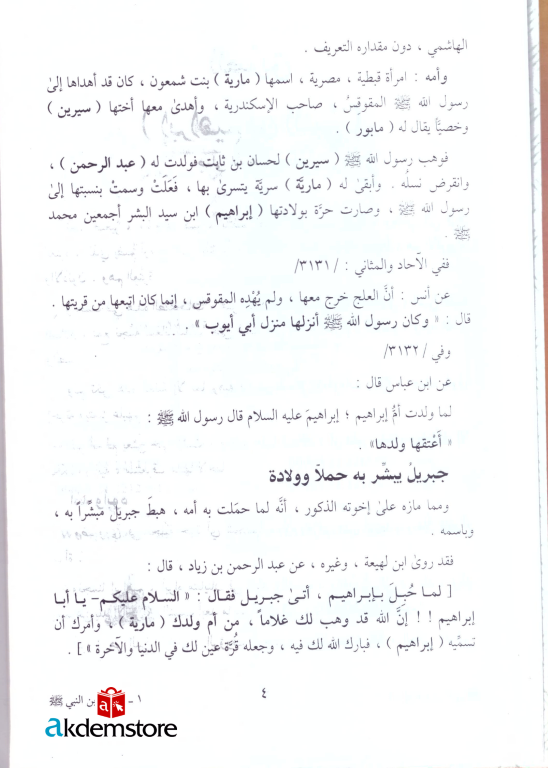 الهاشمي ، دون مقداره التعريف .
وأمه : امرأة قبطية ، مصرية ، اسمها ( مارية ) بنت شمعون ، كان قد أهداها إلىٰ
رسول الله ﷺ المقوقسُ ، صاحب الإسكندرية ، وأهدىٰ معها أختها ( سيرين )
وخصيًّا يقال له ( مابور ) .
فوهب رسول الله ﷺ ( سيرين ) لحسان بن ثابت فولدت له ( عبد الرحمن ) ،
وانقرض نسلُه . وأبقىٰ له ( ماريَّة ) سريَّة يتسرىٰ بها ، فَعَلَتْ وسمتْ بنسبتها إلىٰ
رسول الله ﷺ ، وصارت حرَّة بولادتها ( إبراهيم ) ابن سيد البشر أجمعين محمد
ﷺ .
ففي الآحاد والمثاني : / ٣١٣١/
عن أنس : أنَّ العلج خرج معها ، ولم يُهْدِه المقوقس ، إنما كان اتبعها من قريتها .
قال : « وكان رسول الله ﷺ أنزلها منزل أبي أيوب » .
وفي / ٣١٣٢/
عن ابن عباس قال :
لما ولدت أمُّ إبراهيم ؛ إبراهيمَ عليه السلام قال رسول الله ﷺ :
« أعْتقها ولدها» .
جبريلُ يبشّر به حملاً وولادة
ومما مازه علىٰ إخوته الذكور ، أنَّه لما حمَلت به أمه ، هبطَ جبريل مبشّراً به ،
وباسمه .
فقد روىٰ ابن لهيعة ، وغيره ، عن عبد الرحمن بن زياد ، قال :
[ لما حُبِلَ بإبراهيم ، أتىٰ جبريل فقال : « السلام عليكم- يا أبا
إبراهيم ! ! إنَّ الله قد وهب لك غلاماً ، من أم ولدك ( مارية ) ، وأمرك أن
تسمِّيه ( إبراهيم ) ، فبارك الله لك فيه ، وجعله قُرَّة عين لك في الدنيا والآخرة » ] .
٤
١ - بن النبي ﷺ
akdemstore